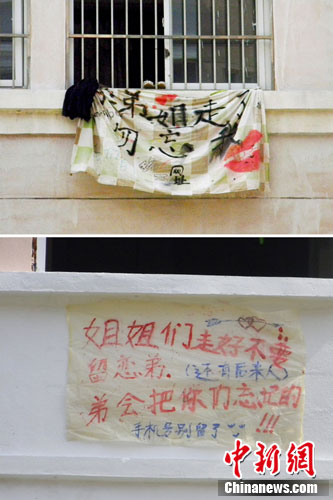 弟 姐走了
勿忘我
网址
姐姐们走好不要
留恋弟.(还有后来人)
弟会把你们忘记的
手机号别留了 !!!
中新网
Chinanews.com